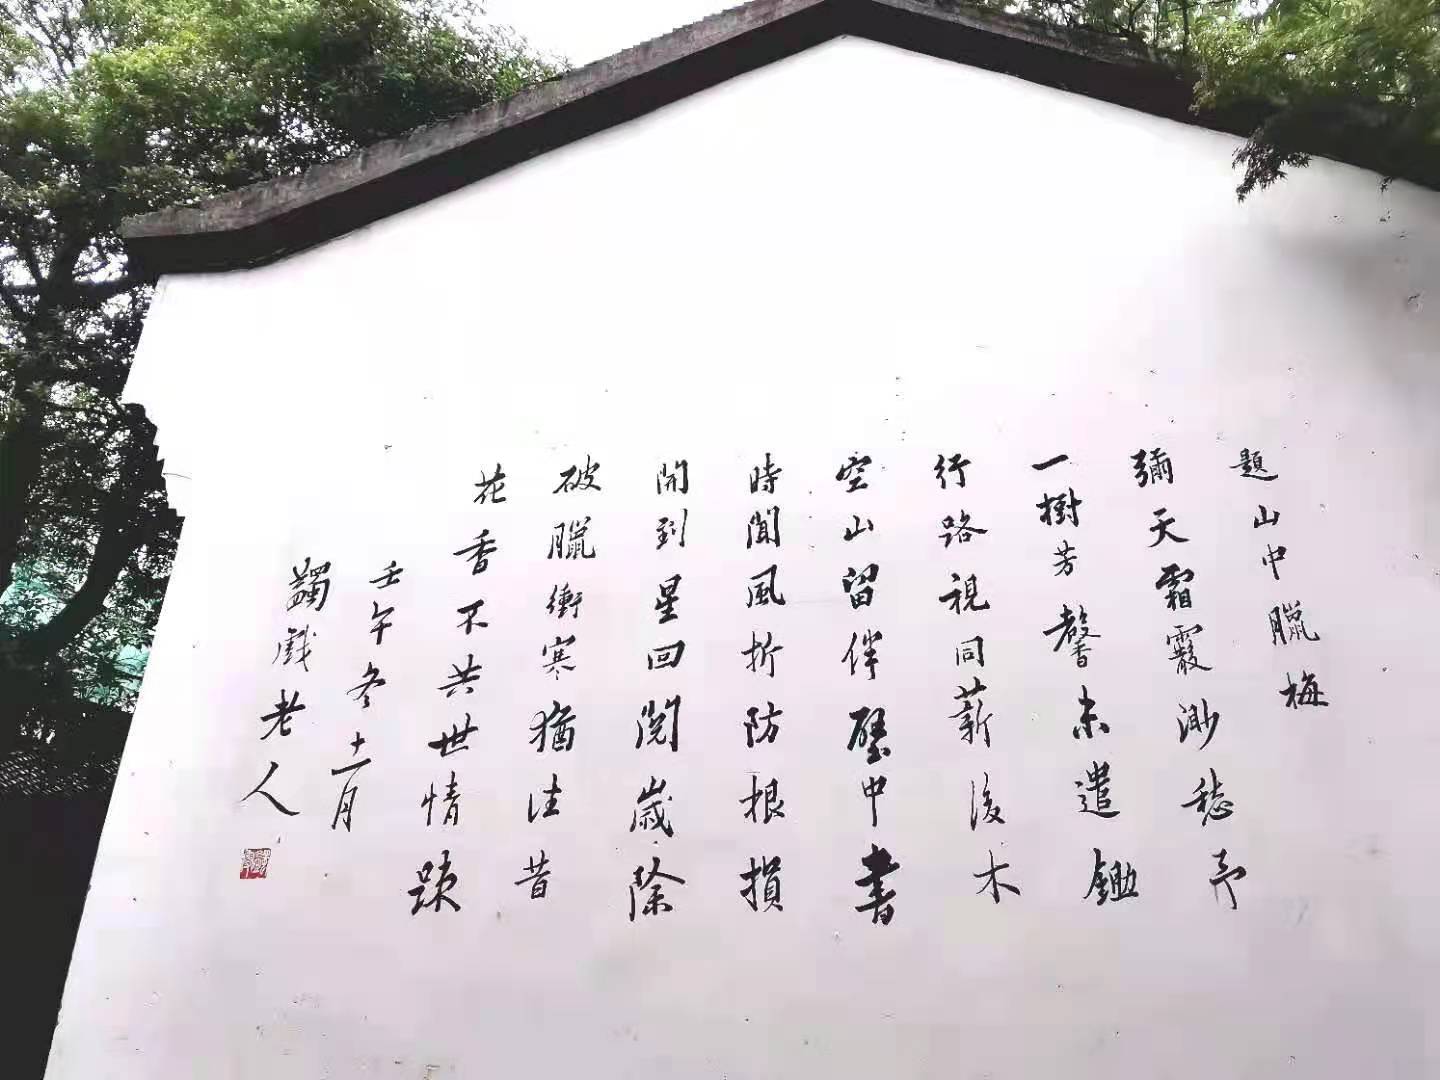 題山中臘梅
彌天霜霰渺愁予
一樹芳馨未遣鋤
行路視同薪後木
空山留伴壁中書
時聞風折防根損
開到星回閱歲除
破臘衝寒猶往昔
花香不共世情踈
壬午冬十一月
蠲戲老人